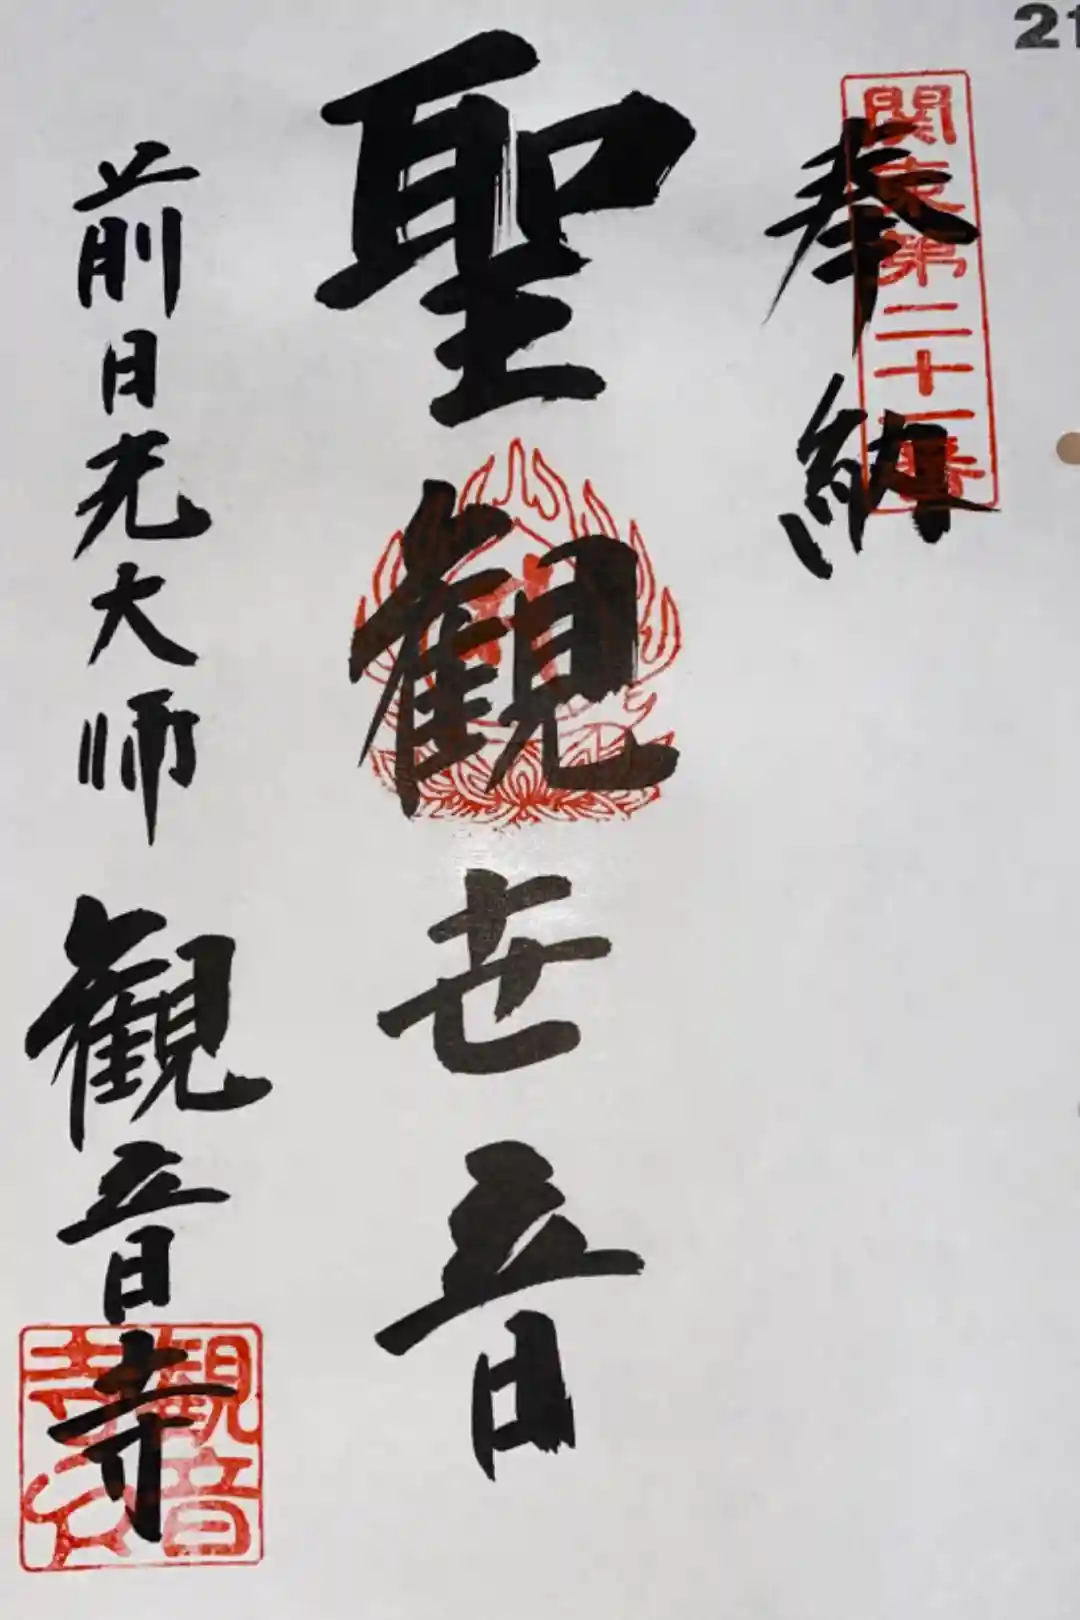 21
関東第二十一番
奉納
聖観世音
前日光大師 観音寺
観音寺